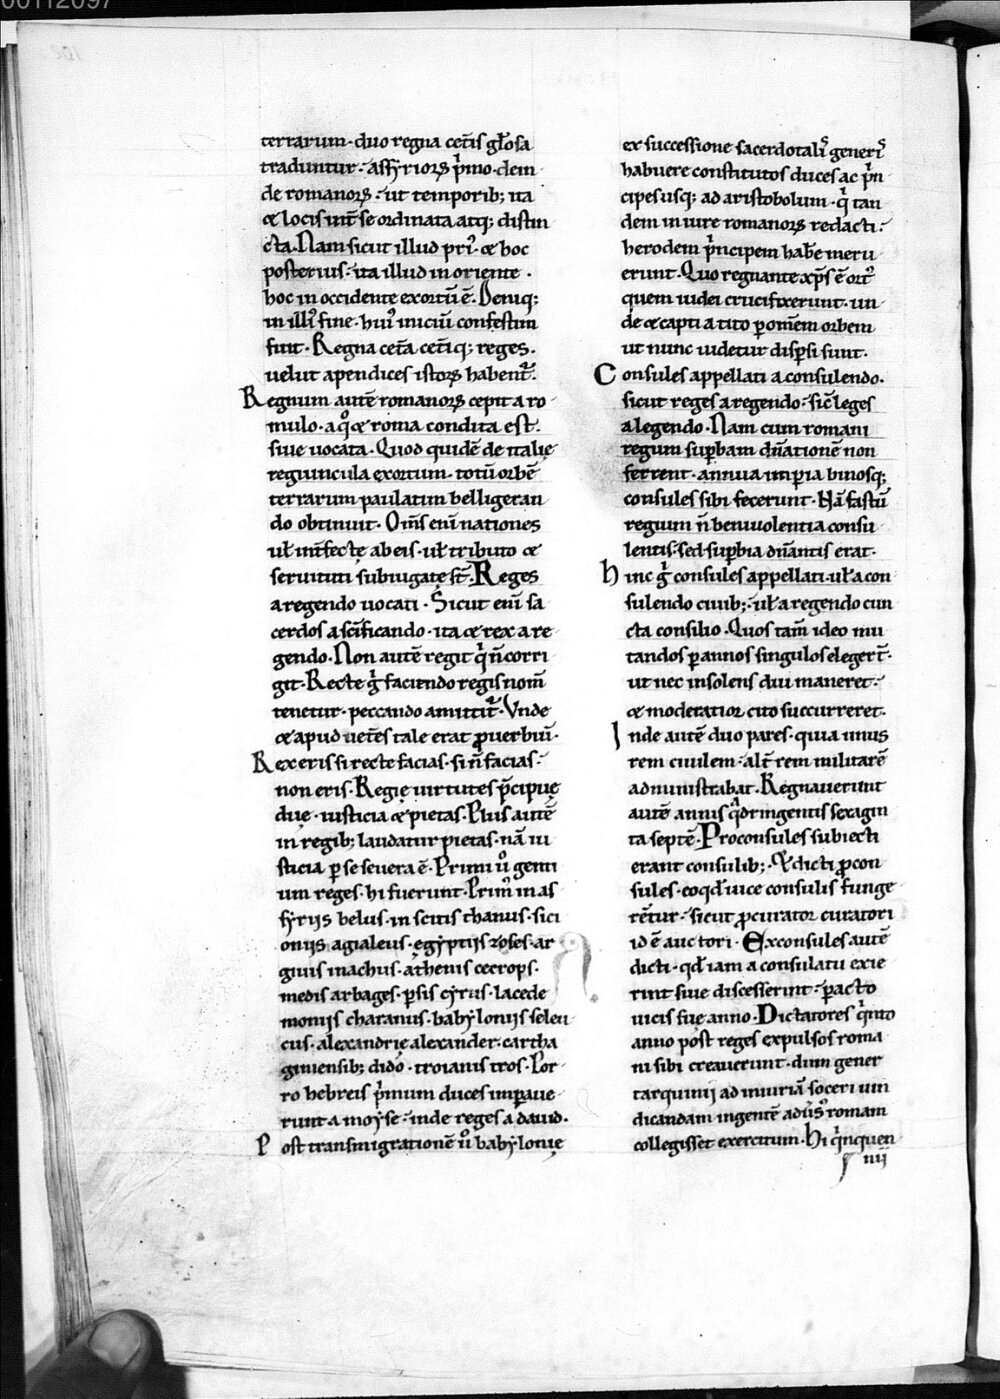 00112097
terrarum· duo regna cet̃is gl̃osa
traduntur· assyrioꝝ p̃mo· dein
de romanoꝝ· ut temporib; ita
& locis int̃ se ordinata atq; distin
cta. Nam sicut illud pri᷒ & hoc
posterius· ita illud in oriente·
hoc in occidente exortũ ẽ. Deniq;
in illi᷒ fine· hui᷒ iniciũ confestim
fuit· Regna cet̃a cet̃iq; reges·
velut apendices istoꝝ habent᷑.
Regnum autẽ romanoꝝ cepit a ro
mulo· a q̊ & roma condita est
siue vocata· Quod quidẽ de italię
regiuncula exortum· totũ orbẽ
terrarum paulatim belligeran
do obtinuit· Om̃s eni nationes
ul̃ int̃fectę ab eis· ul̃ tributo &
seruituti subiugatę st̃. Reges
a regendo uocati· Sicut eni sa
cerdos a sc̃ificando· ita & rex a re
gendo· Non autẽ regit q̇ ñ corri
git· Recte g̊ faciendo regis nom̃
tenetur· peccando amittit᷑· Vnde
& apud uet̃es tale erat ꝓuerbiũ·
Rex eris si recte facias· si ñ facias·
non eris· Regię uirtutes p̃cipuę
duę· iusticia & pietas. Plus autẽ
in regib; laudatur pietas· nã iu
sticia ꝑ se seuera ẽ· Primi ů genti
um reges· hi fuerunt· Prim᷒ in as
syrijs belus· in scitis thanus· sici
oniis agialeus· egyptijs zoses· ar
giuis inachus· athenis cecrops·
medis arbages· ꝑsis cyrus· lacede
moniis charanus· babyloniis seleu
cus· alexandrię alexander· cartha
giniensib; dido· troianis tros· Por
ro hebreis p̃mum duces imꝑaue
runt a moyse· inde reges a dauid·
Post transmigrationẽ ů babylonię
ex successione sacerdotali᷒ generi᷒
habuere constitutos duces ac p̃n
cipes usq; ad aristobolum· q̇ tan
dem in iure romanoꝝ redacti·
herodem p̃ncipem hab̃e meru
erunt· Quo regnante xp̃s ẽ ort᷒
quem iudei crucifixerunt· un
de & capti a tito ꝑ om̃em orbem
ut nunc uidetur disꝑsi sunt·
Consules appellati a consulendo·
sicut reges a regendo· sic̃ leges
a legendo· Nam cum romani
regum suꝑbam dñationẽ non
ferrent· annua imꝑia binosq;
consules sibi fecerunt· Nã fastũ
regium ñ beniuolentia consu
lentis· sed suꝑbia dñantis erat·
hinc g̊ consules appellati· ul̃ a con
sulendo ciuib;· ul̃ a regendo cun
cta consilio· Quos tam̃ ideo mu
tandos ꝑ annos singulos elegert̃·
ut nec insolens diu maneret·
& moderatior cito succurreret·
Inde autẽ duo pares· quia unus
rem ciuilem· alt̃ rem militarẽ
administrabat· Regnauerunt
autẽ annis q̃dringentis sexagin
ta septẽ· Proconsules subiecti
erant consulib;· & dicti ꝓcon
sules· eo qd̃ uice consulis funge
rẽtur· sicut ꝓcurator curatori
id ẽ auctori· Exconsules autẽ
dicti· qd̃ iam a consulatu exie
rint siue discesserint· ꝑacto
uicis suę anno· Dictatores q̇nto
anno post reges expulsos roma
ni sibi creauerunt· dum gener
tarquinij ad iniuriã soceri uin
dicandam ingentẽ adũs᷒ romam
collegisset exercitum· hi q̇nquen
iiij